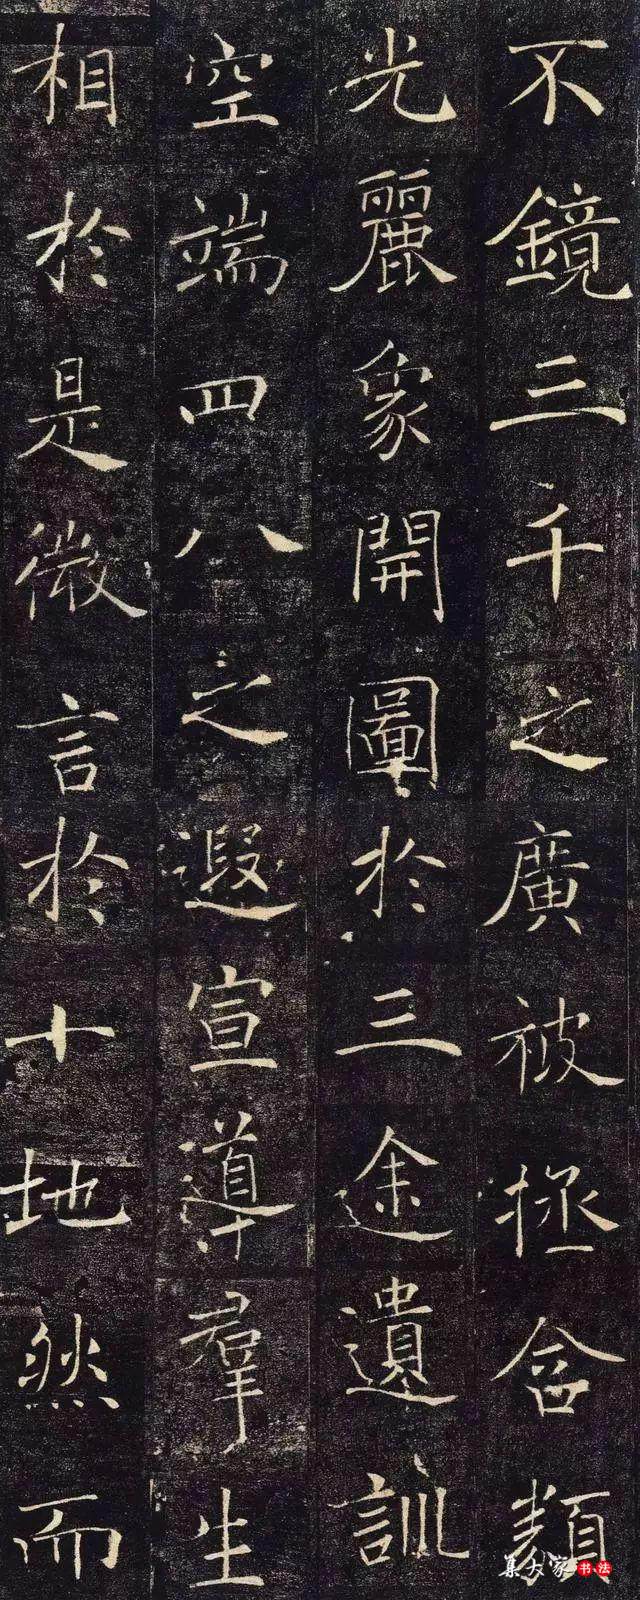 不鏡三千之廣被拯含類
光麗象開圖於三途遺訓
空端四八之遐宣導羣生
相於是微言於十地然而
集大家书法